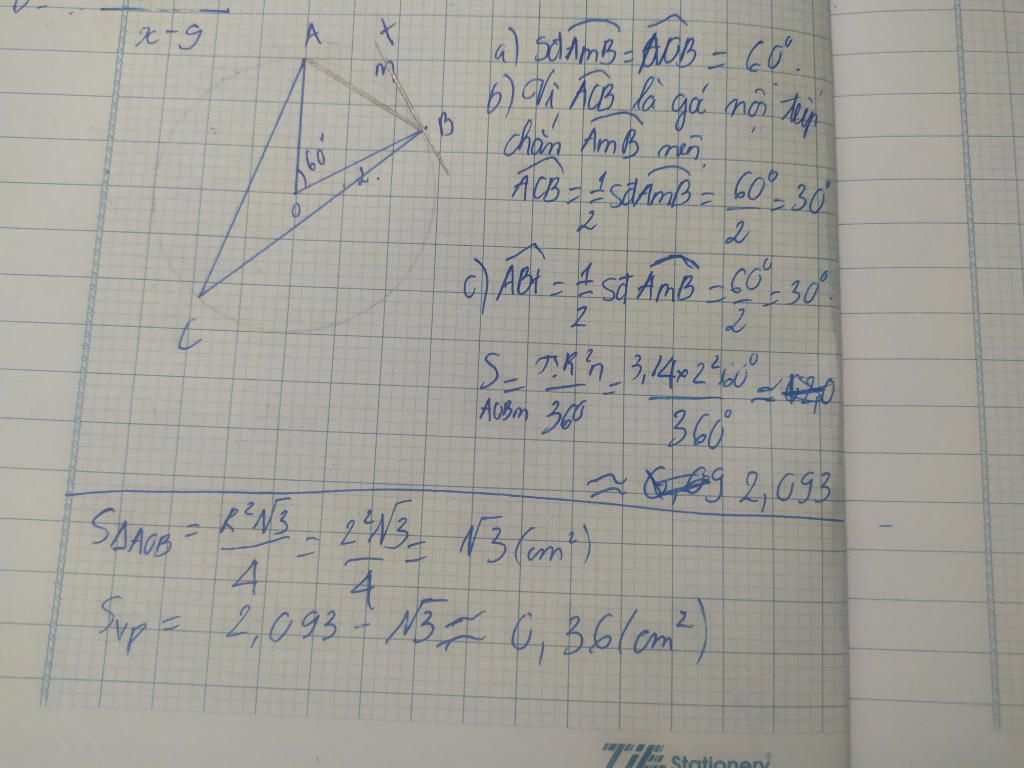 x-9
A
X
m
B
60°
2.
O
C
a) Sđ AmB = AOB = 60°.
b) Vì ACB là gó nội tiếp
chắn AmB nên
ACB = 1/2 sđ AmB = 60°/2 = 30°
c) ABx = 1/2 sđ AmB = 60°/2 = 30°.
S AOBm = π.R²n/360° = 3,14×2²60°/360° ≈
≈ 2,093
S∆AOB = R²√3/4 = 2²√3/4 = √3 (cm²)
Svp = 2,093 - √3 ≈ 0,36 (cm²)
Stationery